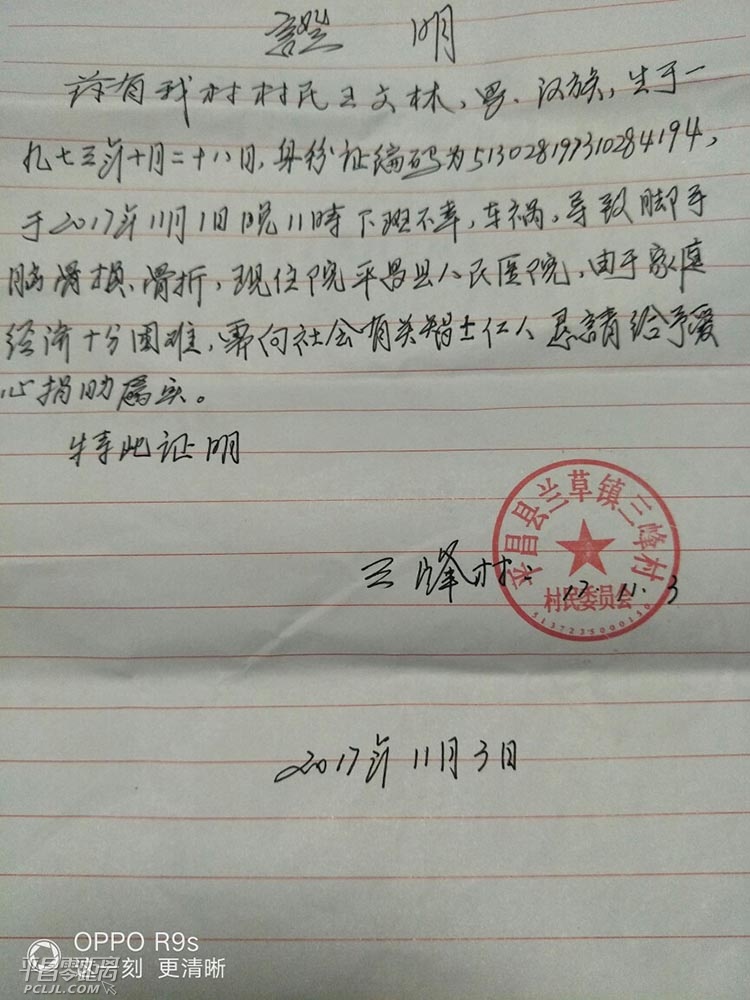 證 明
兹有我村村民王文林,男、汉族,生于一
九七三年十月二十八日,身份证编码为513028197310284194,
于2017年11月1日晚11時下班不幸,车祸,导致脚手
脑骨损、骨折,现住院平昌县人民医院,由于家庭
经济十分困难,需向社会有关智士仁人恳請给予爱
心捐助属实。
特此证明
平昌县兰草镇三峰村
村民委员会
5137235000150
三峰村: 17.11.3
2017年11月3日
OPPO R9s
这一刻 更清晰
平昌零距离
PCLJL.COM